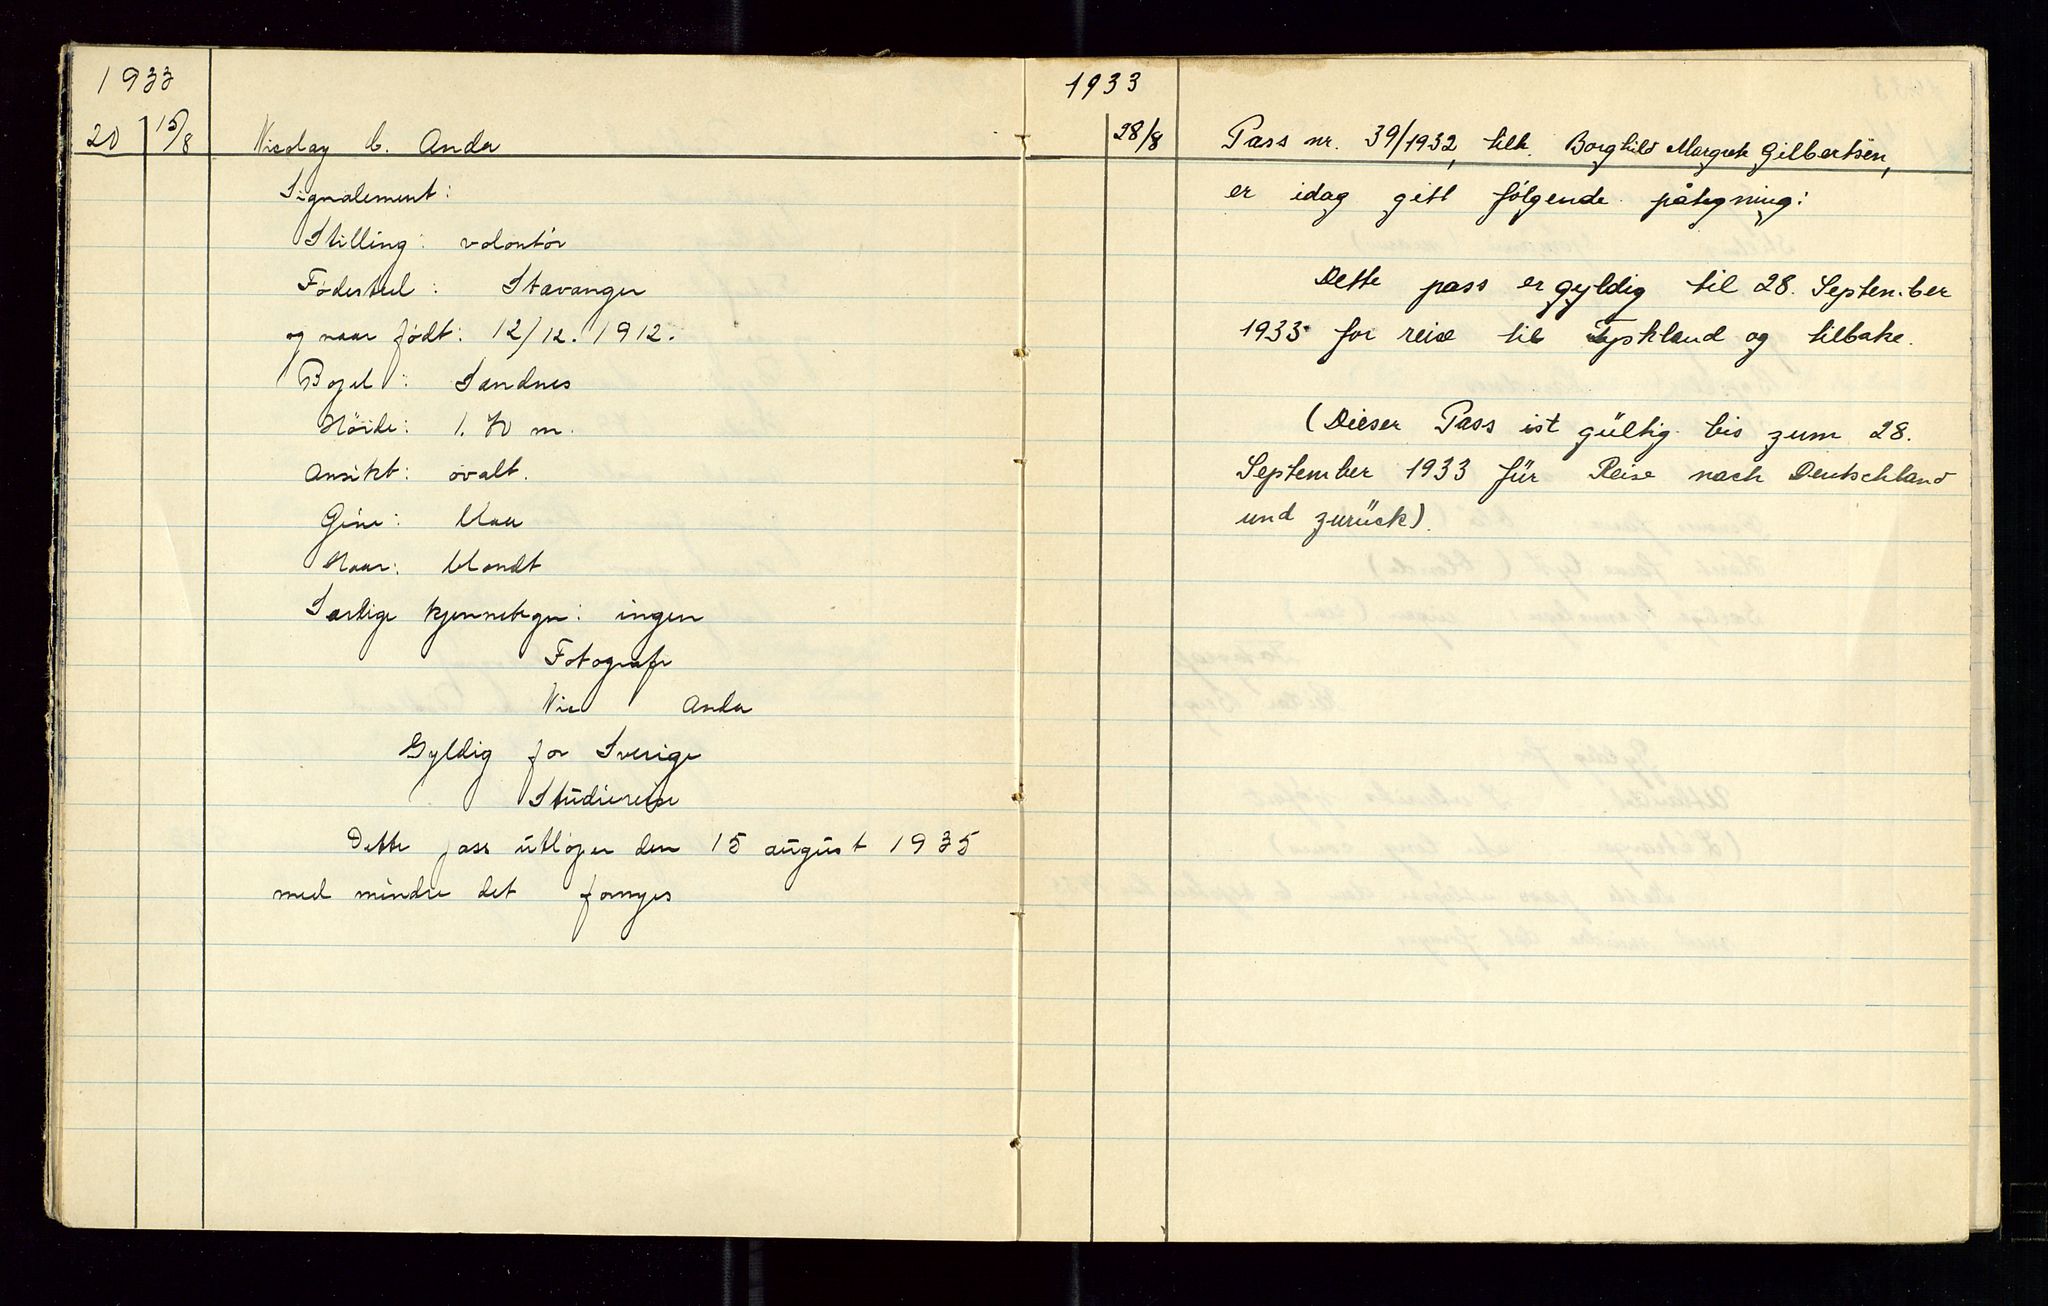 1933
20 15/8 Nicolay C. Anda
Signalement:
Stilling: volontør
Fødested: Stavanger
og naar født: 12/12. 1912.
Bopel: Sandnes
Höide: 1.70 m.
Ansikt: ovalt.
Øine: blaa
Haar: blondt
Særlige kjennetegn: ingen
Fotografi
Nic Anda
Gyldig for Sverige
Studiereise
Dette pass utløper den 15 august 1935
med mindre det fornyes
1933
28/8 Pass nr. 39/1932, tilh. Borghild Margrete Gilbertsen,
er idag gitt følgende påtegning:
Dette pass er gyldig til 28. September
1933 for reise til Tyskland og tilbake.
(Dieser Pass ist gültig bis zum 28.
September 1933 für Reise nach Deutschland
und zurück).